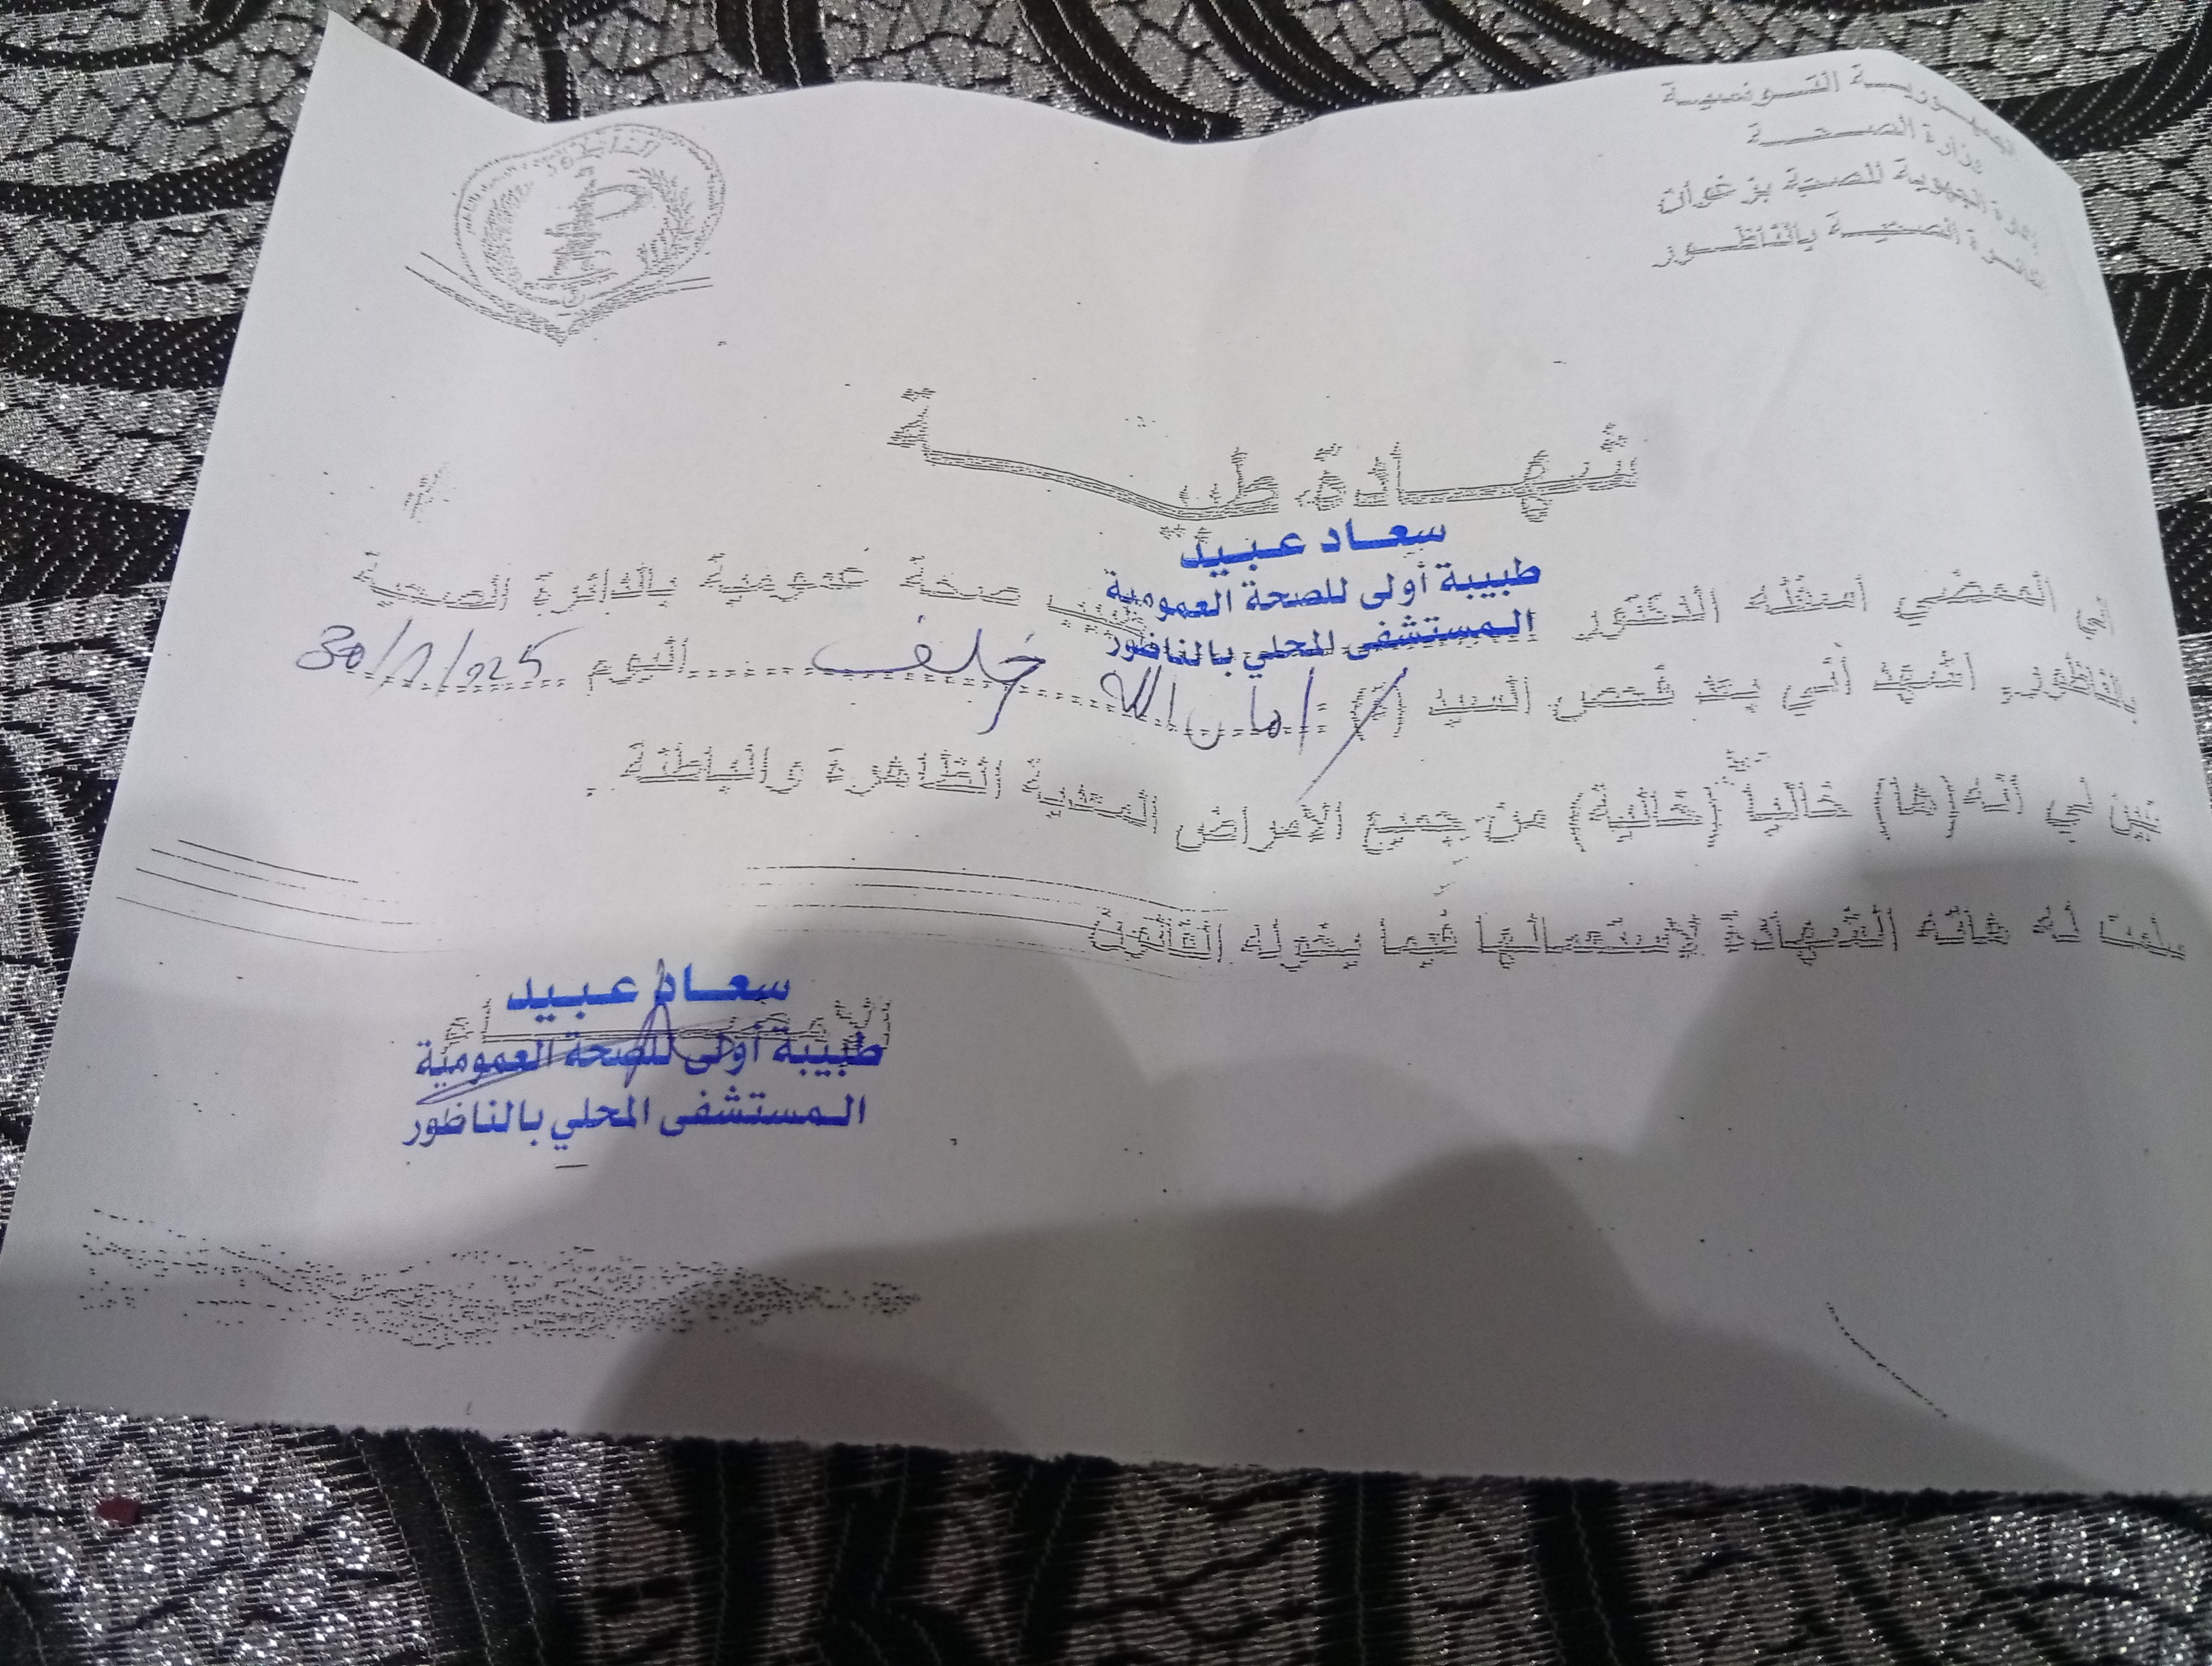 الجمهوريـــة التـــونسيـــة
وزارة الصـــحـــة
إدارة الجهوية للصحة بزغوان
الدائـــرة الصحيـــة بالناظـــور
الناظور
شهـــادة طبيـــة
إني الممضي أسفله الدكتور سعاد عبيد طبيب صحة عمومية بالدائرة الصحية
طبيبة أولى للصحة العمومية
المستشفى المحلي بالناظور
بالناظور أشهد أني بعد فحص السيد (ة) : امان الله خلف اليوم 30/1/025
تبين لي أنه (ها) خالياً (خالية) من جميع الأمراض المعدية الظاهرة والباطنة .
سلمت له هاته الشهادة لإستعمالها فيما يخوله القانون
الامضـــاء
سعاد عبيد
طبيبة أولى للصحة العمومية
المستشفى المحلي بالناظور